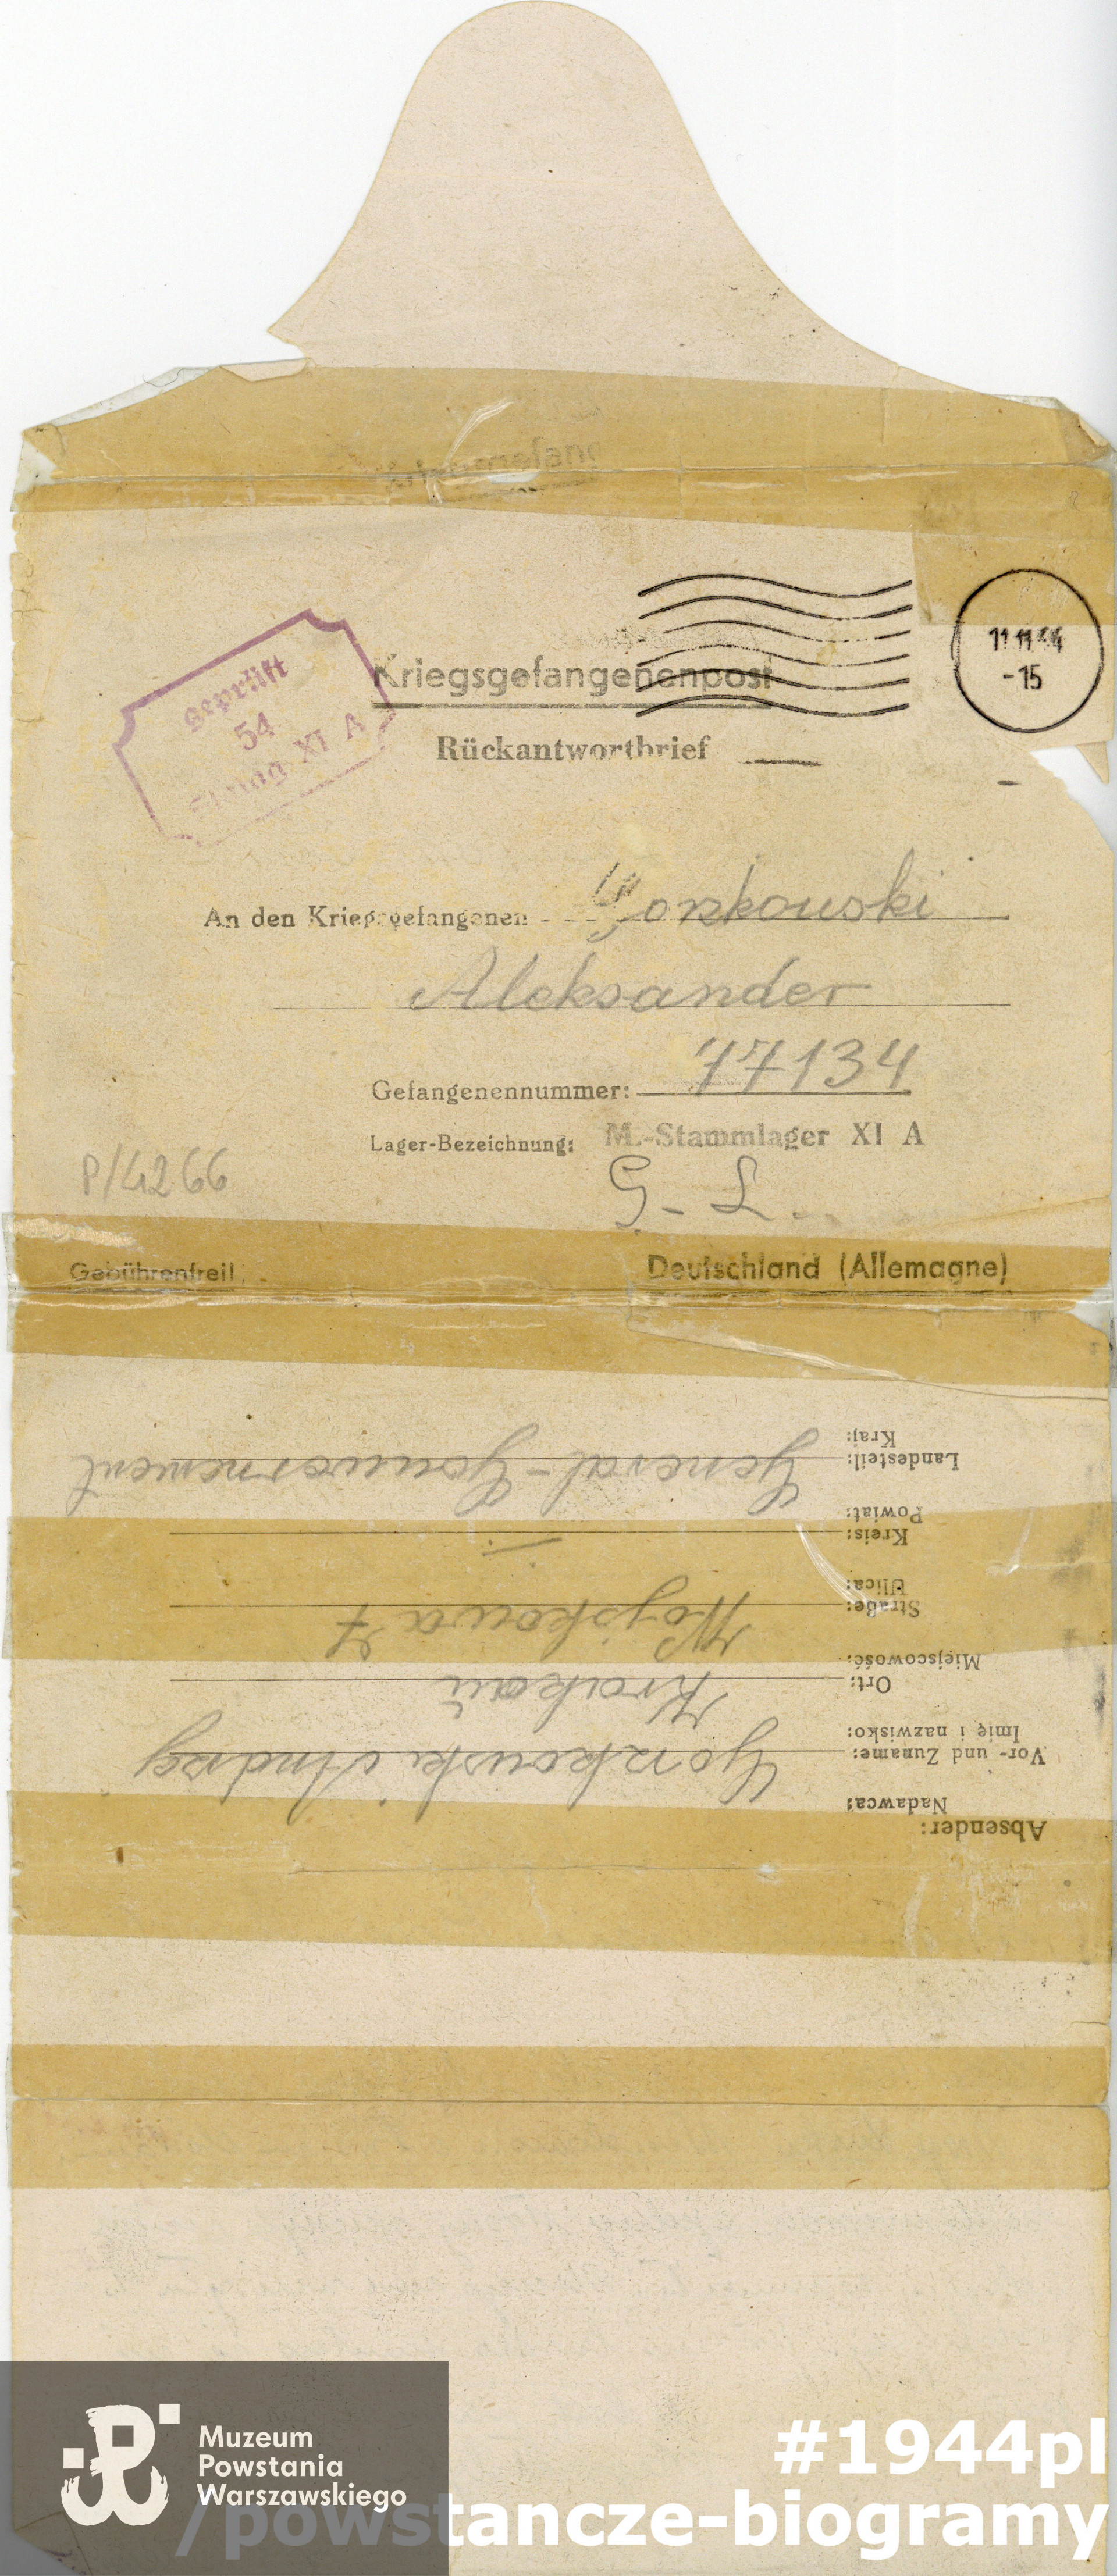 Kriegsgefangenenpost
11.11.44
-15
Rückantwortbrief
geprüft
54
Stalag XI A
An den Kriegsgefangenen Gorzkowski
Aleksander
Gefangenennummer: 77134
Lager-Bezeichnung: M.-Stammlager XI A
G. - L.
P/4266
Gebührenfrei!
Deutschland (Allemagne)
Absender:
Nadawca:
Vor- und Zuname: Gorzkowski Andrzej
Imię i nazwisko:
Ort: Krakau
Miejscowość:
Straße: Wojskowa 7
Ulica:
Kreis:
Powiat:
Landesteil: General-Gouvernement
Kraj:
Muzeum
Powstania
Warszawskiego
#1944pl
/powstancze-biogramy